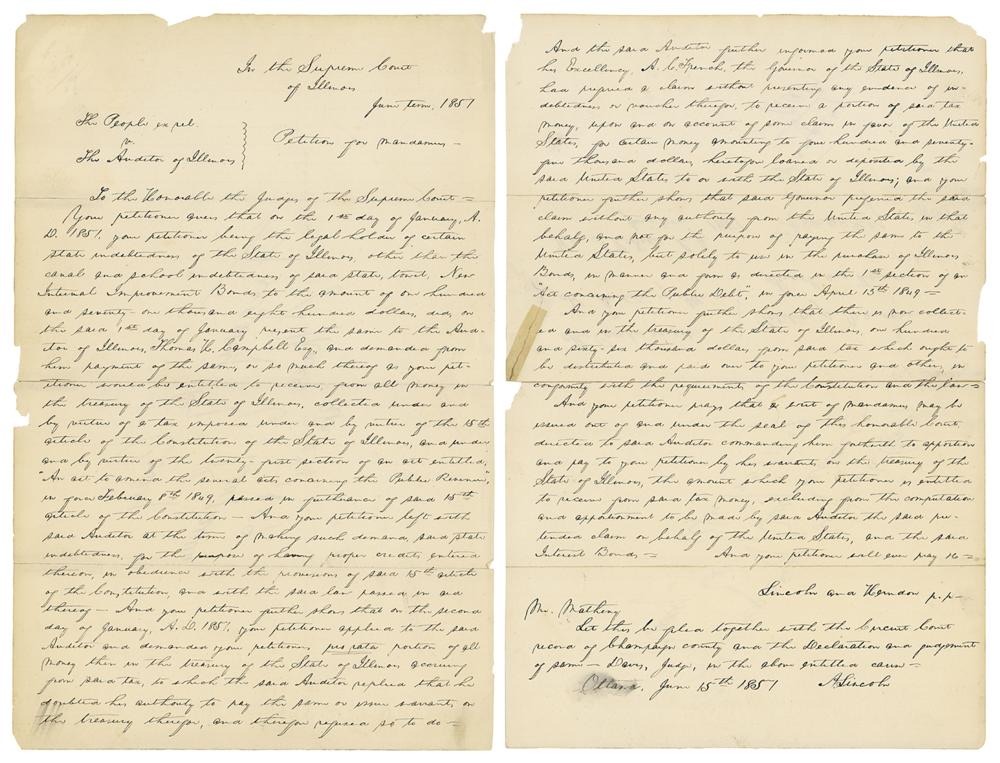 In the Supreme Court
of Illinois
June term, 1851
The People ex rel.
v.
The Auditor of Illinois
Petition for Mandamus —
To the Honorable the Judges of the Supreme Court =
Your petitioner avers that on the 1st day of January, A.
D. 1851, your petitioner being the legal holder of certain
state indebtedness of the State of Illinois, other than the
canal and school indebtedness of said state, towit, New
Internal Improvement Bonds to the amount of one hundred
and seventy-one thousand eight hundred dollars, did, on
the said 1st day of January present the same to the Aud-
itor of Illinois, Thomas H. Campbell Esq, and demanded from
him payment of the same, or so much thereof as your pet-
itioner would be entitled to receive, from all money in
the treasury of the State of Illinois, collected under and
by virtue of a tax imposed under and by virtue of the 15th
article of the Constitution of the State of Illinois, and under
and by virtue of the twenty-first section of an act entitled,
"An act to amend the several acts concerning the Public Revenue",
in force February 8th 1849, passed in furtherance of said 15th
article of the Constitution — And your petitioner left with
said Auditor at the time of making such demand, said state
indebtedness, for the purpose of having proper credits entered
thereon, in obedience with the provisions of said 15th article
of the Constitution, and with the said law passed in aid
thereof — And your petitioner further shows that on the second
day of January, A. D. 1851, your petitioner applied to the said
Auditor and demanded your petitioners, pro rata portion of all
money then in the treasury of the State of Illinois accruing
from said tax, to which the said Auditor replied that he
doubted his authority to pay the same or issue warrants on
the treasury therefor, and therefore refused so to do —
And the said Auditor further informed your petitioner that
his Excellency, A. C. French, the Governor of the State of Illinois,
had refered a claim without presenting any evidence of in-
debtedness or voucher therefor, to receive a portion of said tax
money, upon and on account of some claim in favor of the United
States, for certain money amounting to four hundred and seventy-
five thousand dollars, heretofore loaned or deposited by the
said United States to or with the State of Illinois; and your
petitioner further shows that said Governor refered the said
claim without any authority from the United States in that
behalf, and not for the purpose of paying the same to the
United States, but solely to use in the purchase of Illinois
Bonds, in manner and form as directed in the 1st section of an
"Act concerning the Public Debt", in force April 15th 1849 =
And your petitioner further shows that there is now collect-
ed and in the treasury of the State of Illinois, one hundred
and sixty-six thousand dollars from said tax which ought to
be distributed and paid over to your petitioner and others, in
conformity with the requirements of the Constitution and the law =
And your petitioner prays that a writ of mandamus may be
issued out of and under the seal of this honorable Court,
directed to said Auditor commanding him forthwith to apportion
and pay to your petitioner by his warrants on the treasury of the
State of Illinois, the amount which your petitioner is entitled
to receive from said tax money, excluding from the computation
and apportionment to be made by said Auditor the said pre-
tended claim on behalf of the United States, and the said
Interest Bonds, = And your petitioner will ever pray
Lincoln and Herndon p.p—
Mr. Matheny
Let this be filed together with the Circuit Court
record of Champaign county and the Declaration and judgement
of same — Davis, Judge, in the above entitled cause —
Ottawa, June 15th 1851 A Lincoln